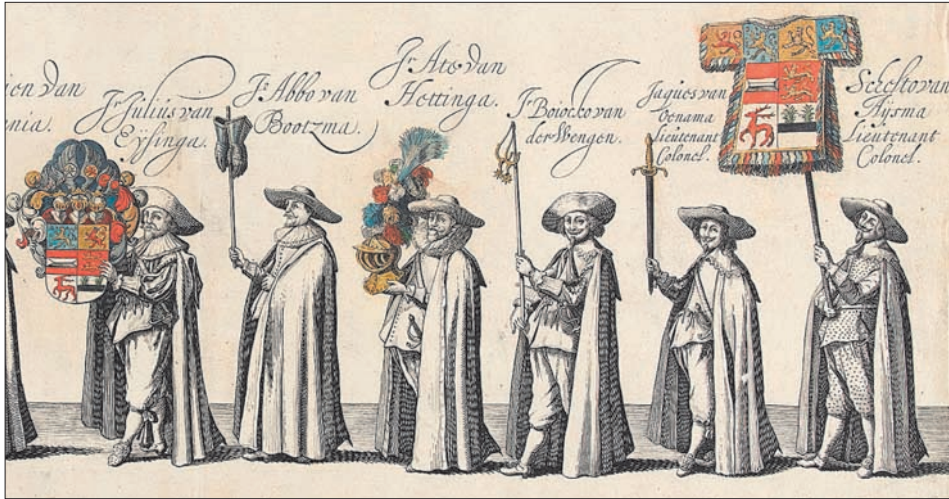 Jr Julius van
Eysinga.
Jr Abbo van
Bootzma.
Jr Ats van
Hettinga.
Jr Boiocko van
der Wengen.
Jaques van
Oenama
Lieutenant
Colonel.
van
Aÿsma
Lieutenant
Colonel.